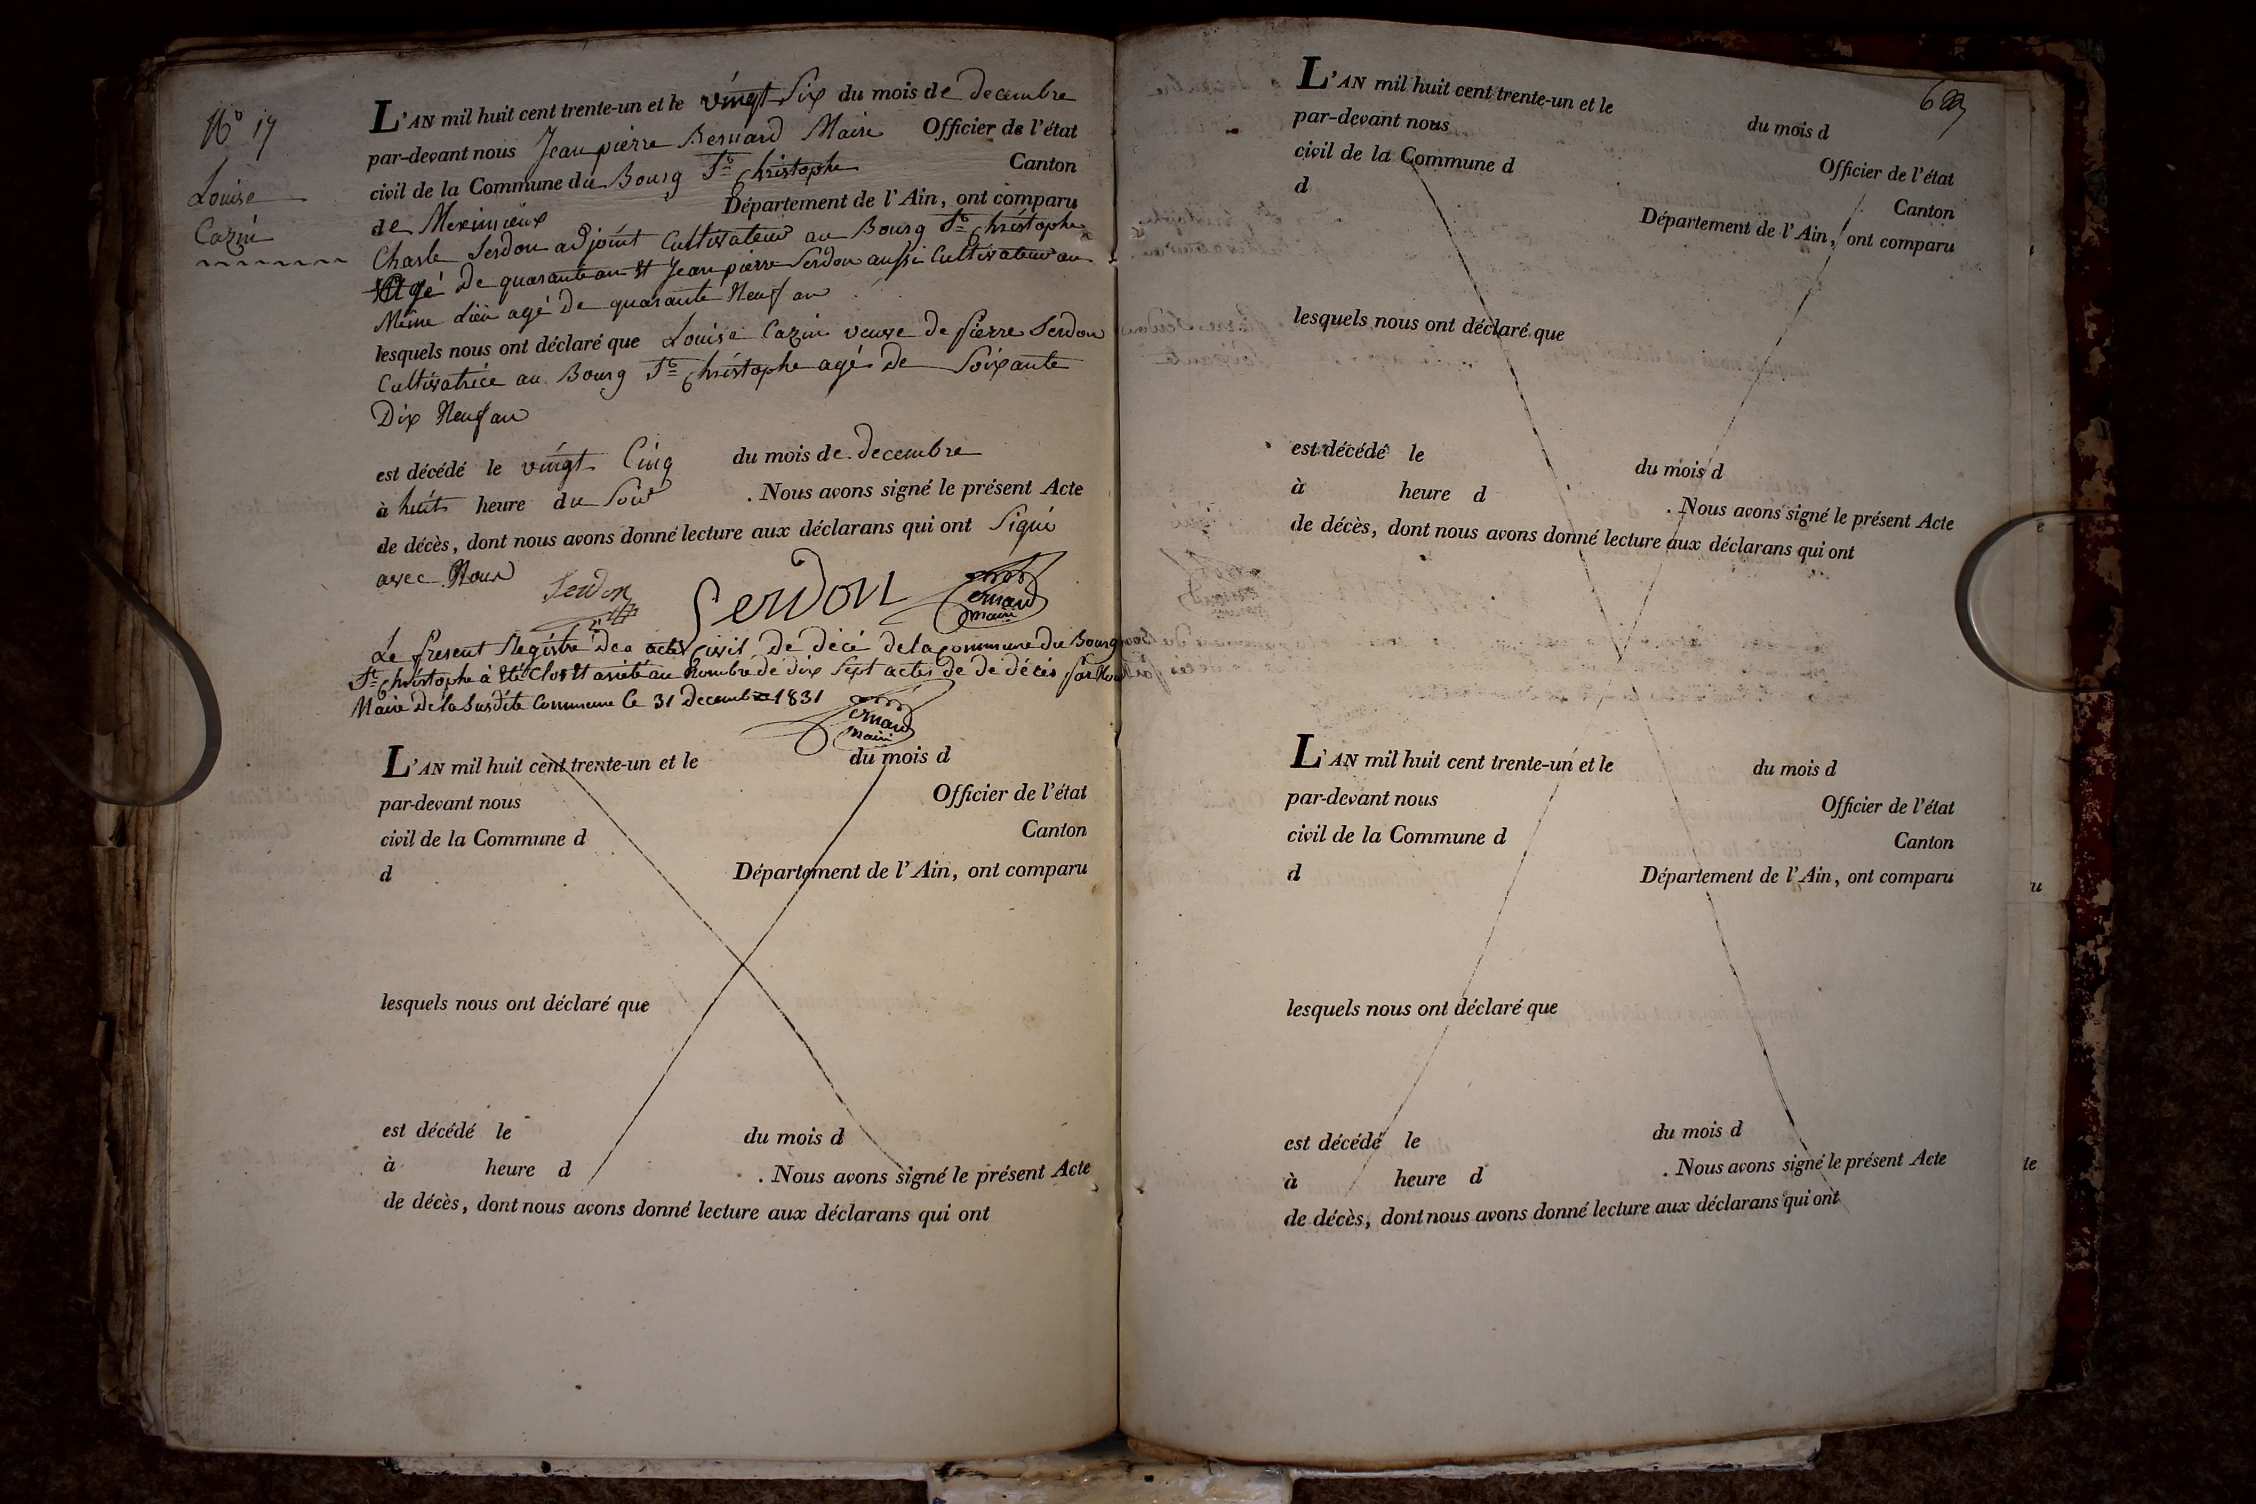 N° 17
Louise
Cazin
L'AN mil huit cent trente-un et le vingt Six du mois de decembre
par-devant nous Jean pierre Bernard Maire Officier de l'état
civil de la Commune du Bourg St Christophe Canton
de Meximieux Département de l'Ain, ont comparu
Charle Serdon adjoint Cultivateur au Bourg St Christophe
agé De quarante an et Jean pierre Serdon aussi Cultivateur au
Même Lieu agé De quarante Neuf an
lesquels nous ont déclaré que Louise Cazin veuve de pierre Serdon
Cultivatrice au Bourg St Christophe agé De Soixante
Dix Neuf an
est décédé le vingt Cinq du mois de decembre
à huit heure du Soir . Nous avons signé le présent Acte
de décès, dont nous avons donné lecture aux déclarans qui ont Signé
avec Nous
Serdon Serdon Bernard maire
Le present Registre des actes Civil De décé de la commune du Bourg
St Christophe à été Clos et arrêté au Nombre de dix Sept actes de de décés par Nous
Maire De la Susdite Commune Ce 31 Decembre 1831
Bernard maire
L'AN mil huit cent trente-un et le du mois d
par-devant nous Officier de l'état
civil de la Commune d Canton
d Département de l'Ain, ont comparu
lesquels nous ont déclaré que
est décédé le du mois d
à heure d . Nous avons signé le présent Acte
de décès, dont nous avons donné lecture aux déclarans qui ont
L'AN mil huit cent trente-un et le du mois d
par-devant nous Officier de l'état
civil de la Commune d Canton
d Département de l'Ain, ont comparu
lesquels nous ont déclaré que
est décédé le du mois d
à heure d . Nous avons signé le présent Acte
de décès, dont nous avons donné lecture aux déclarans qui ont
L'AN mil huit cent trente-un et le du mois d
par-devant nous Officier de l'état
civil de la Commune d Canton
d Département de l'Ain, ont comparu
lesquels nous ont déclaré que
est décédé le du mois d
à heure d . Nous avons signé le présent Acte
de décès, dont nous avons donné lecture aux déclarans qui ont